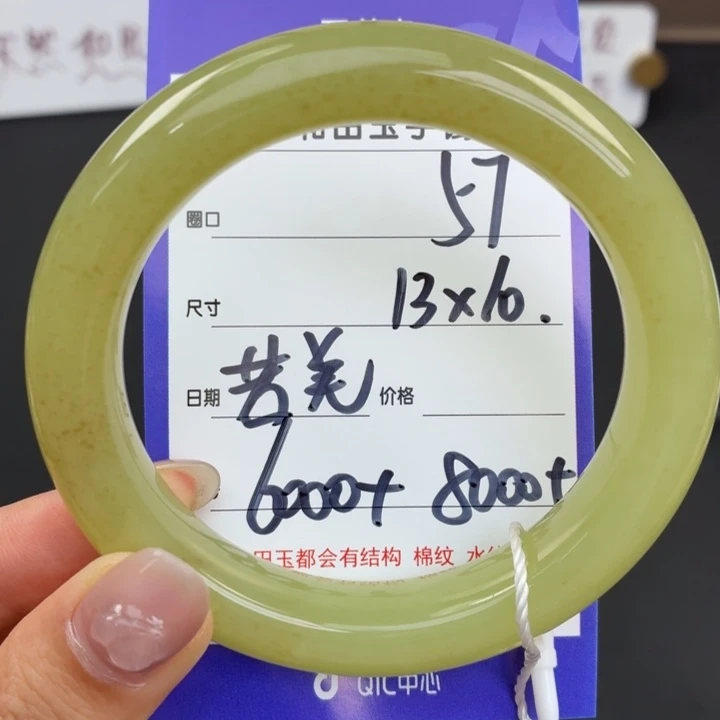 和田玉手
圈口 57
尺寸 13×10.
日期 苦羌 价格
6000+ 8000+
田玉都会有结构 棉纹 水
QIC中心